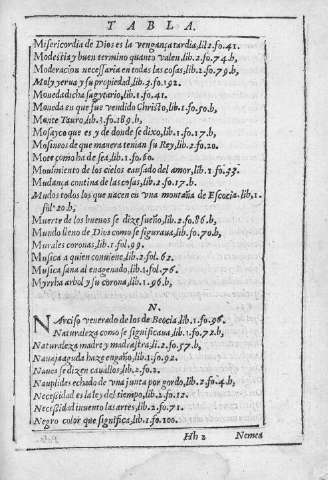 TABLA.
Misericordia de Dios es la vengança tardia, lib.2.fo.41.
Modestia y buen termino quanto valen, lib.2.fo.74.b,
Moderacion necessaria en todas las cosas, lib.2.fo.79.b,
Moly yerua y su propiedad, lib.3.fo.192.
Moneda dicha sagytario, lib.1.fo.41.
Moneda en que fue vendido Christo, lib.1.fo.50.b,
Monte Tauro, lib.3.fo.189.b,
Mosayco que es y de donde se dixo, lib.1.fo.17.b,
Mosineos de que manera tenian su Rey, lib.2.fo.20.
Mote como ha de sea, lib.1.fo.60.
Mouimiento de los cielos causado del amor, lib.1.fo.53.
Mudança contina de las cosas, lib.2.fo.17.b,
Mudos todos los que nacen en vna montaña de Escozia, lib.1.
fol.20.b,
Muerte de los buenos se dize sueño, lib.2.fo.86.b,
Mundo lleno de Dios como se figuraua, lib.1.fo.70.b,
Murales coronas, lib.1.fol.99.
Musica a quien conuiene, lib.2.fol.62.
Musica sana al enagenado, lib.1.fol.76.
Myrrha arbol y su corona, lib.1.96.b,
N.
NArciso venerado de los de Beocia, lib.1.fo.96.
Naturaleza como se significaua, lib.1.fo.72.b,
Naturaleza madre y madrastra, li.2.fo.57.b,
Nauaja aguda haze engaño, lib.1.fo.92.
Naues se dizen cauallos, lib.2.fo.2.
Nauplides echado de vna junta por gordo, lib.2.fo.4.b,
Necessidad es la ley del tiempo, lib.2.fo.12.
Necessidad inuento las artes, lib.2.fo.71.
Negro color que significa, lib.1.fo.100.
Hh 2 Nemea